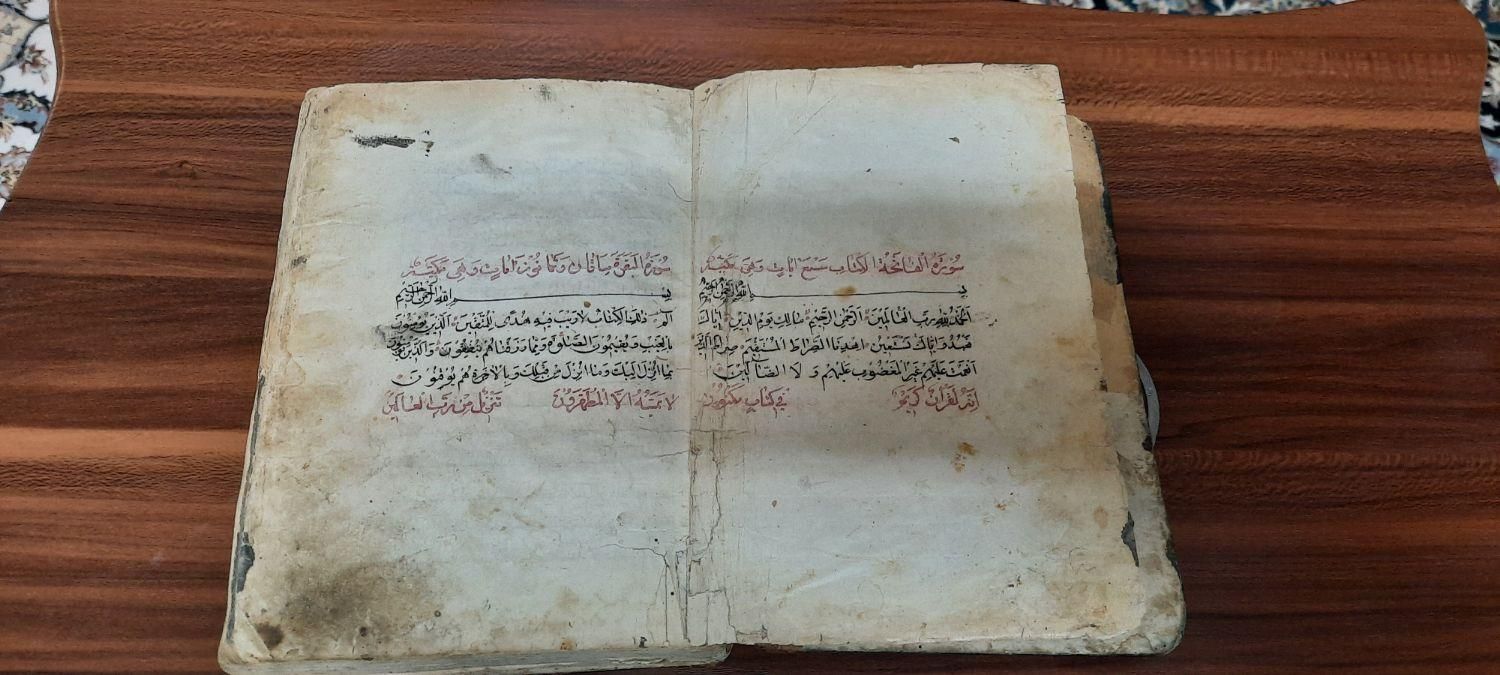 سورة الفاتحة لكتاب سبع ايات وهي مكية
بسم الله الرحمن الرحيم
الحمد لله رب العالمين الرحمن الرحيم مالك يوم الدين اياك
نعبد واياك نستعين اهدنا الصراط المستقيم صراط الذين
انعمت عليهم غير المغضوب عليهم ولا الضالين
انه لقران كريم في كتاب مكنون
سورة البقرة مايتان وثمانون ايات وهي مكية
بسم الله الرحمن الرحيم
الم ذلك الكتاب لا ريب فيه هدى للمتقين الذين يؤمنون
بالغيب ويقيمون الصلوة ومما رزقناهم ينفقون والذين يؤمنون
بما انزل اليك وما انزل من قبلك وبالاخرة هم يوقنون
لا يمسه الا المطهرون تنزيل من رب العالمين